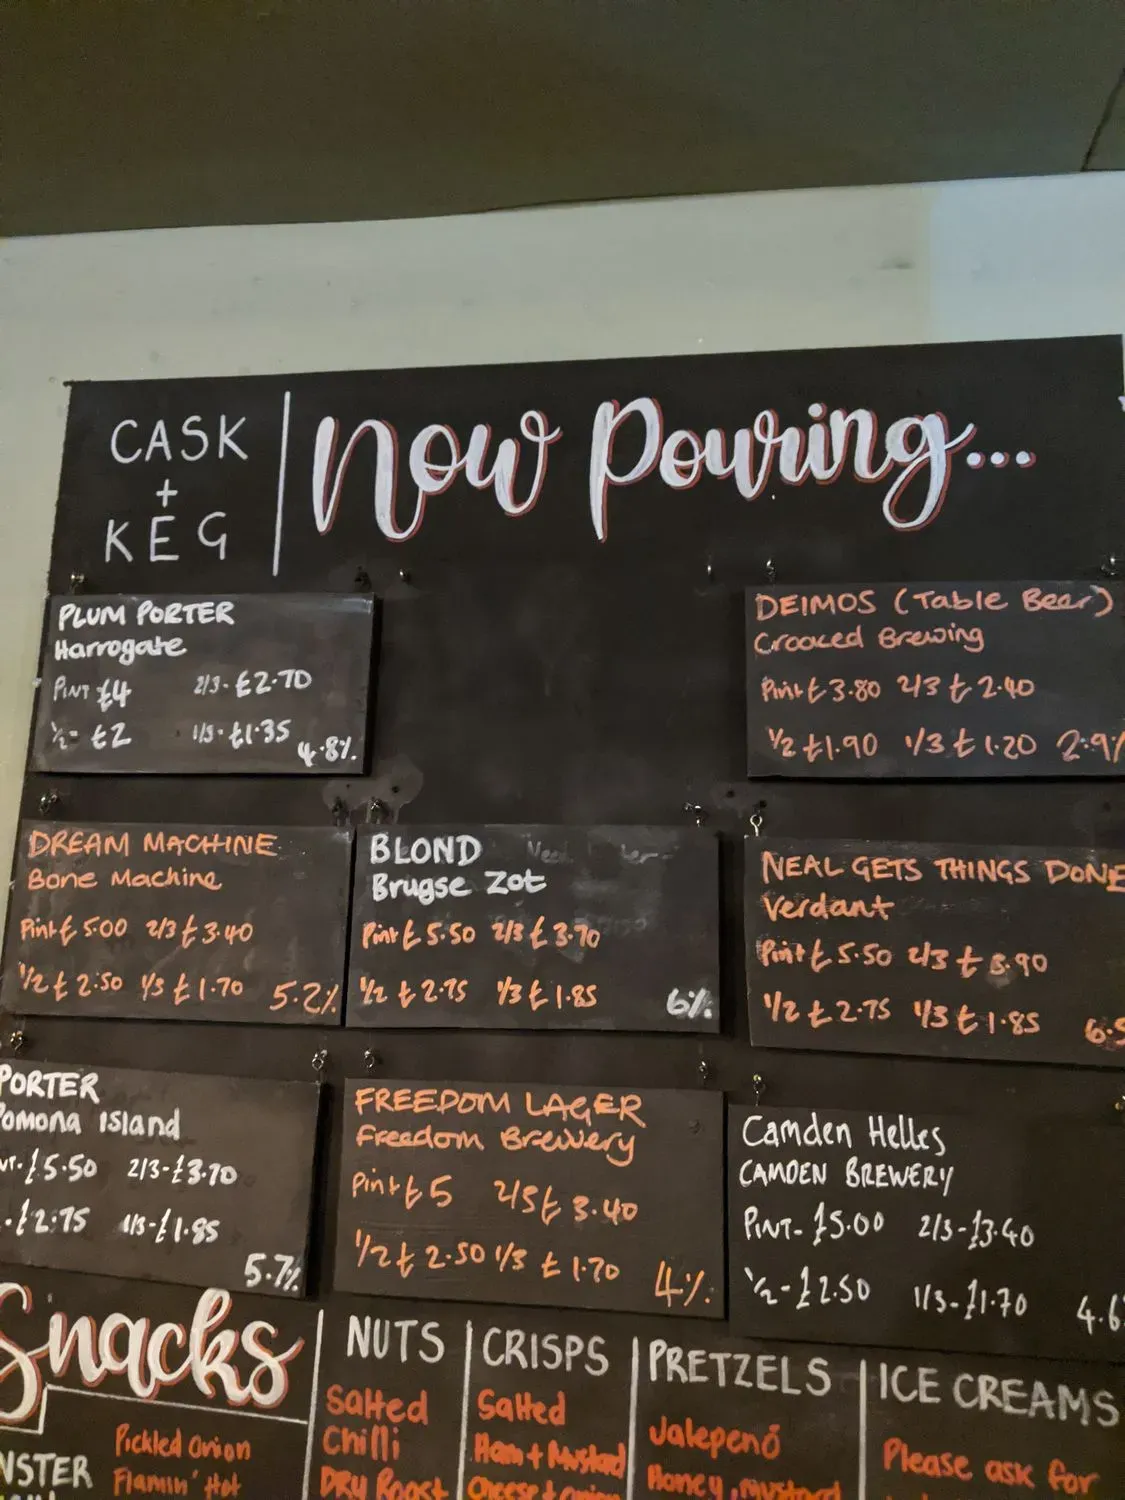 CASK
+
KEG
Now Pouring...
PLUM PORTER
Harrogate
PINT £4 2/3-£2.70
1/2- £2 1/3-£1.35
4.8%
DEIMOS (Table Beer)
Crooced Brewing
Pint £3.80 2/3 £2.40
1/2 £1.90 1/3 £1.20 2.9%
DREAM MACHINE
Bone Machine
Pint £5.00 2/3 £3.40
1/2 £2.50 1/3 £1.70 5.2%
BLOND
Brugse Zot
Pint £5.50 2/3 £3.70
1/2 £2.75 1/3 £1.85 6%
NEAL GETS THINGS DONE
Verdant
Pint £5.50 2/3 £3.90
1/2 £2.75 1/3 £1.85
PORTER
Pomona Island
£5.50 2/3-£3.70
£2.75 1/3-£1.85
5.7%
FREEDOM LAGER
Freedom Brewery
Pint £5 2/3 £3.40
1/2 £2.50 1/3 £1.70 4%
Camden Helles
CAMDEN BREWERY
PINT- £5.00 2/3-£3.40
1/2-£2.50 1/3-£1.70 4.6
Snacks
Pickled Onion
Flamin' Hot
NUTS
Salted
Chilli
Dry Roast
CRISPS
Salted
Ham + Mustard
Cheese + onion
PRETZELS
Jalepenō
Honey, mustard
ICE CREAMS
Please ask for